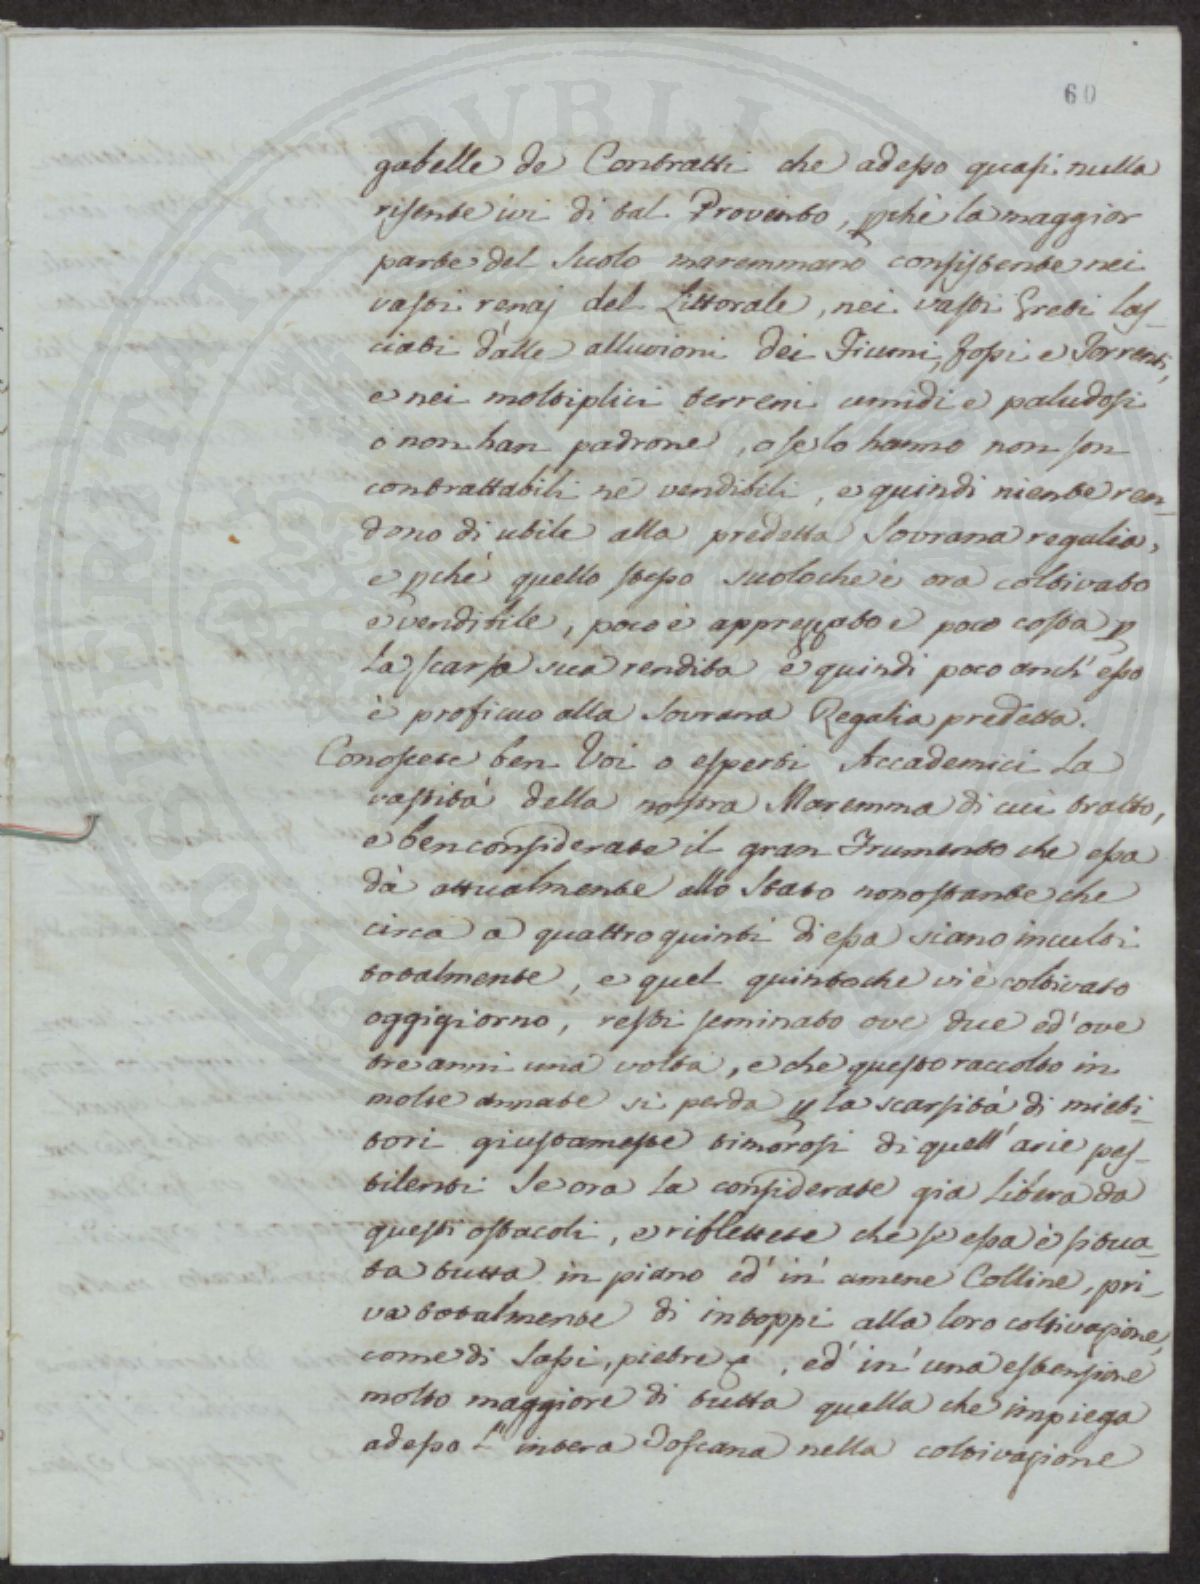 60
gabelle de Contratti che adesso quasi nulla
risente ivi di tal Provento, pchè la maggior
parte del suolo maremmano consistente nei
vasti renaj del Littorale, nei vasti Greti las-
ciati dalle alluvioni dei Fiumi, fossi e Torrenti,
e nei moltiplici terreni umidi e paludosi
o non han padrone, o se lo hanno non son
contrattabili ne vendibili, e quindi niente ren-
dono di utile alla predetta Sovrana regalia,
e pchè quello stesso suolo che è ora coltivato
e vendibile, poco è apprezzato e poco costa p
la scarsa sua rendita e quindi poco anch' esso
è proficuo alla Sovrana Regalia predetta.
Conoscete ben Voi o esperti Accademici la
vastità della nostra Maremma di cui tratto,
e ben considerate il gran Frumento che essa
dà attualmente allo Stato nonostante che
circa a quattro quinti di essa siano inculti
totalmente, e quel quinto che vi è coltivato
oggigiorno, resti seminato ove due ed' ove
tre anni una volta, e che questo raccolto in
molte annate si perda p la scarsità di mieti-
tori giustamente timorosi di quell' arie pes-
tilenti Se ora la considerate già libera da
questi ostacoli, e riflettete che se essa è situa-
ta tutta in piano ed' in' amene Colline, pri-
va totalmente di intoppi alla loro coltivazione,
come di Sassi, pietre &, ed' in' una estensione
molto maggiore di tutta quella che impiega
adesso l' intera Toscana nella coltivazione